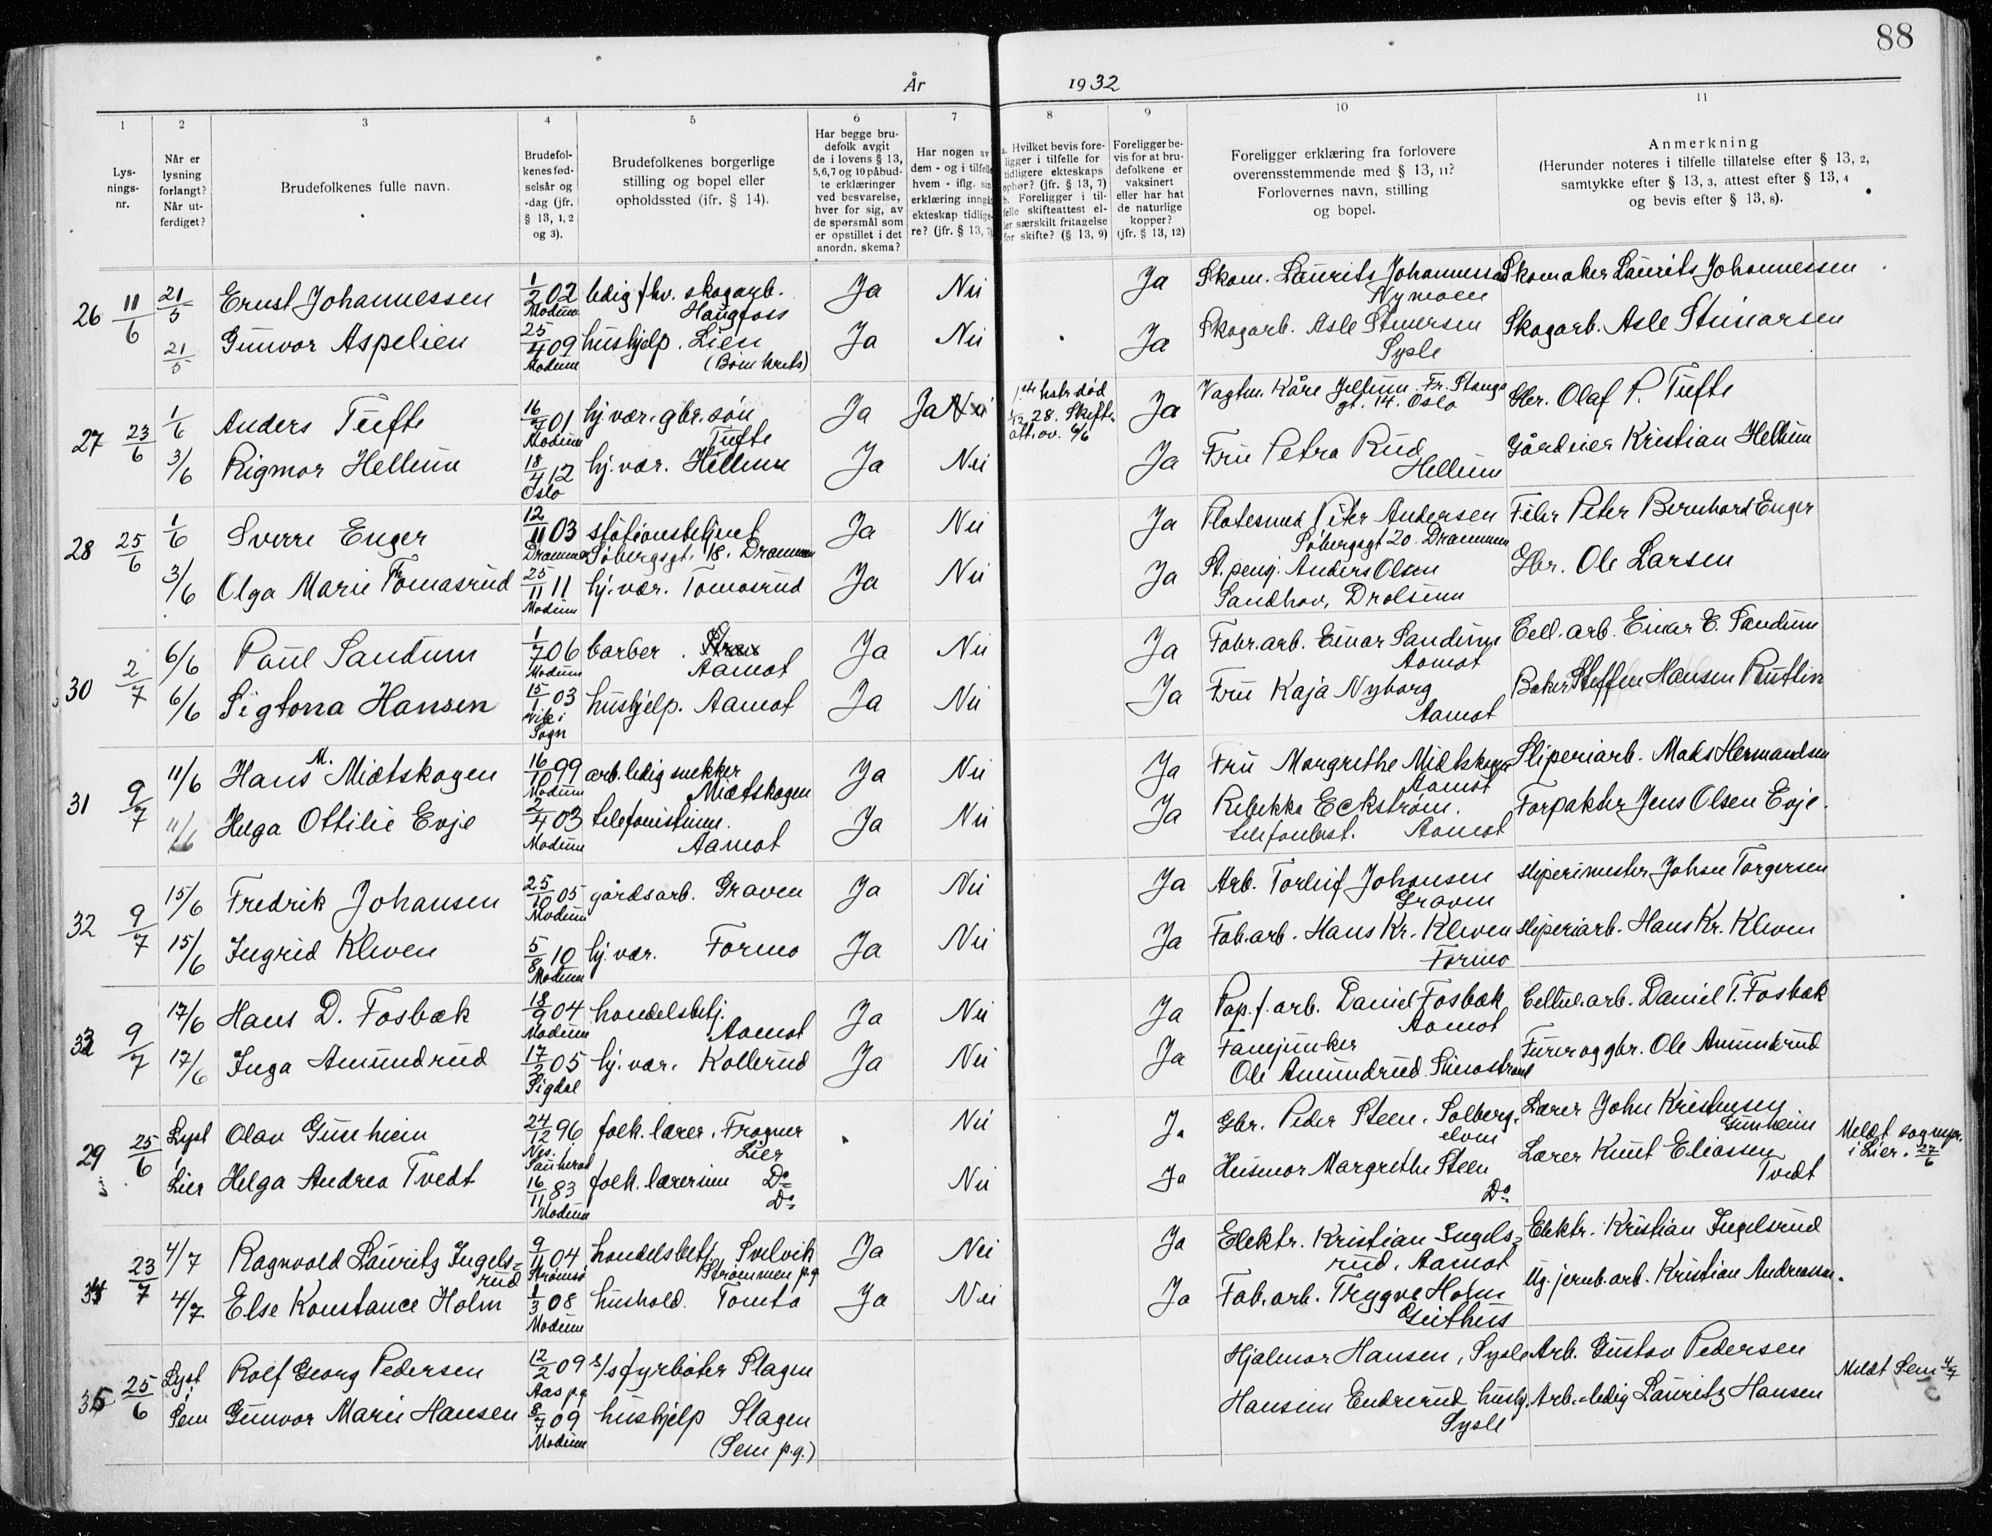 88
År 1932
1 2 3 4 5 6 7 8 9 10 11
Lys-
nings-
nr.
Når er
lysning
forlangt?
Når ut-
ferdiget?
Brudefolkenes fulle navn.
Brudefol-
kenes fød-
selsår og
-dag (jfr.
§ 13, 1, 2
og 3).
Brudefolkenes borgerlige
stilling og bopel eller
opholdssted (ifr. § 14).
Har begge bru-
defolk avgit
de i lovens § 13,
5,6,7 og 10 påbud-
te erklæringer
ved besvarelse,
hver for sig, av
de spørsmål som
er opstillet i det
anordn. skema?
Har nogen av
dem - og i tilfelle
hvem - iflg. sin
erklæring inngått
ekteskap tidlige-
re? (jfr. § 13, 7)
a. Hvilket bevis fore-
ligger i tilfelle for
tidligere ekteskaps
ophør? (jfr. § 13, 7)
b. Foreligger i til-
felle skifteattest el-
ler særskilt fritagelse
for skifte? (§ 13, 9)
Foreligger be-
vis for at bru-
defolkene er
vaksinert
eller har hat
de naturlige
kopper?
(jfr. § 13, 12)
Foreligger erklæring fra forlovere
overensstemmende med § 13, 11?
Forlovernes navn, stilling
og bopel.
Anmerkning
(Herunder noteres i tilfelle tillatelse efter § 13, 2,
samtykke efter § 13, 3, attest efter § 13, 4
og bevis efter § 13, 8).
26 11/6 21/5 Ernst Johannessen 1/2 02 Modum ledig fhv. skogarb. Haugfoss Ja Nei Ja Skom. Laurits Johannessen Nymoen Skomaker Laurits Johannessen
21/5 Gunvor Aspelien 25/4 09 Modum hushjelp. Lien Ja Nei Ja Skogarb. Asle Steinersen Sysle Skogarb. Asle Steinarsen
27 23/6 1/6 Anders Tufte 16/7 01 Modum hj. vær. gbr. søn Tufte Ja Ja Nei 1ste hstr. død 28. Skifte- att. av. 6/6 Ja Vagtm. Kåre Jellum. Fr. Stangs gt. 14. Oslo Gbr. Olaf P. Tufte
3/6 Rigmor Hellum 18/4 12 Oslo hj. vær. Hellum Ja Nei Ja Fru Petra Rud Hellum Gårdeier Kristian Hellum
28 25/6 1/6 Sverre Enger 12/11 03 Drammen stationsbetjent Søbergsgt. 18. Drammen Ja Nei Ja Peter Andersen Søbergsgt 20. Drammen Peter Bernhard Enger
3/6 Olga Marie Tomasrud 25/11 11 Modum hj. vær. Tomasrud Ja Nei Ja Anders Olsen Sandhov, Drolsum Gbr. Ole Larsen
30 2/7 6/6 Paul Sandum 1/7 06 Modum barber. Aamot Ja Nei Ja Fabr. arb. Einar Sandum Aamot Cell. arb. Einar E. Sandum
6/6 Sigtona Hansen 15/1 03 Vik i Sogn hushjelp. Aamot Ja Nei Ja Fru Kaja Nyborg Aamot Baker Steffen Hansen Ruttin
31 9/7 11/6 Hans M. Miætskogen 16/10 99 Modum arb. ledig snekker Miætskogen Ja Nei Ja Fru Margrethe Miætskogen Aamot Sliperiarb. Mads Hermandsen
11/6 Helga Ottilie Evje 2/4 03 Modum telefonistinne. Aamot Ja Nei Ja Rebekka Eckstrøm. telefonbest. Aamot Forpakter Jens Olsen Evje.
32 9/7 15/6 Fredrik Johansen 25/10 05 Modum gårdsarb. Graven Ja Nei Ja Arb. Torleif Johansen Graven Sliperimester Johan Torgersen
15/6 Ingrid Kleven 5/8 10 Modum hj. vær. Formo Ja Nei Ja Fab. arb. Hans Kr. Kleven Formo Sliperiarb. Hans Kr. Kleven
33 9/7 17/6 Hans D. Fosbæk 18/9 04 Modum handelsbetj. Aamot Ja Nei Ja Pap. f. arb. Daniel Fosbæk Aamot Cellul. arb. Daniel T. Fosbæk
17/6 Inga Amundrud 17/2 05 Sigdal hj. vær. Kollerud Ja Nei Ja Fanejunker Ole Amundrud Furer og gbr. Ole Amundrud
29 25/6 Lyst i Lier Olav Gunheim 24/12 96 Nes. Sauherad folk. lærer. Frogner Lier Nei Ja Gbr. Peder Steen. Solberg- elven Lærer John Kristensen Gunheim Meldt sognepr. i Lier. 27/6
Helga Andrea Tvedt 16/11 83 Modum folk. lærerinne Do Do Nei Ja Husmor Margrethe Steen Do Lærer Knut Eliassen Tvedt
34 23/7 4/7 Ragnvald Lauritz Ingels- rud 9/1 04 Strømsø handelsbetj. Svelvik Strømmen p.g. Ja Nei Ja Elektr. Kristian Ingels- rud, Aamot Elektr. Kristian Ingelsrud
4/7 Else Konstance Holm 1/3 08 Modum hushold. Tomta Ja Nei Ja Fab. arb. Trygve Holm Geithus Ug. jernb. arb. Kristian Andreassen.
35 25/6 Lyst i Sem Rolf Georg Pedersen 12/2 09 Aas pg s/s fyrbøter Slagen Hjalmar Hansen, Sysle Arb. Gustav Pedersen Meldt Sem 4/7
Gunvor Marie Hansen 8/7 09 Modum hushjelp Slagen (Sem p.g.) Hansine Endrerud husm. Sysle Arb.-ledig Lauritz Hansen